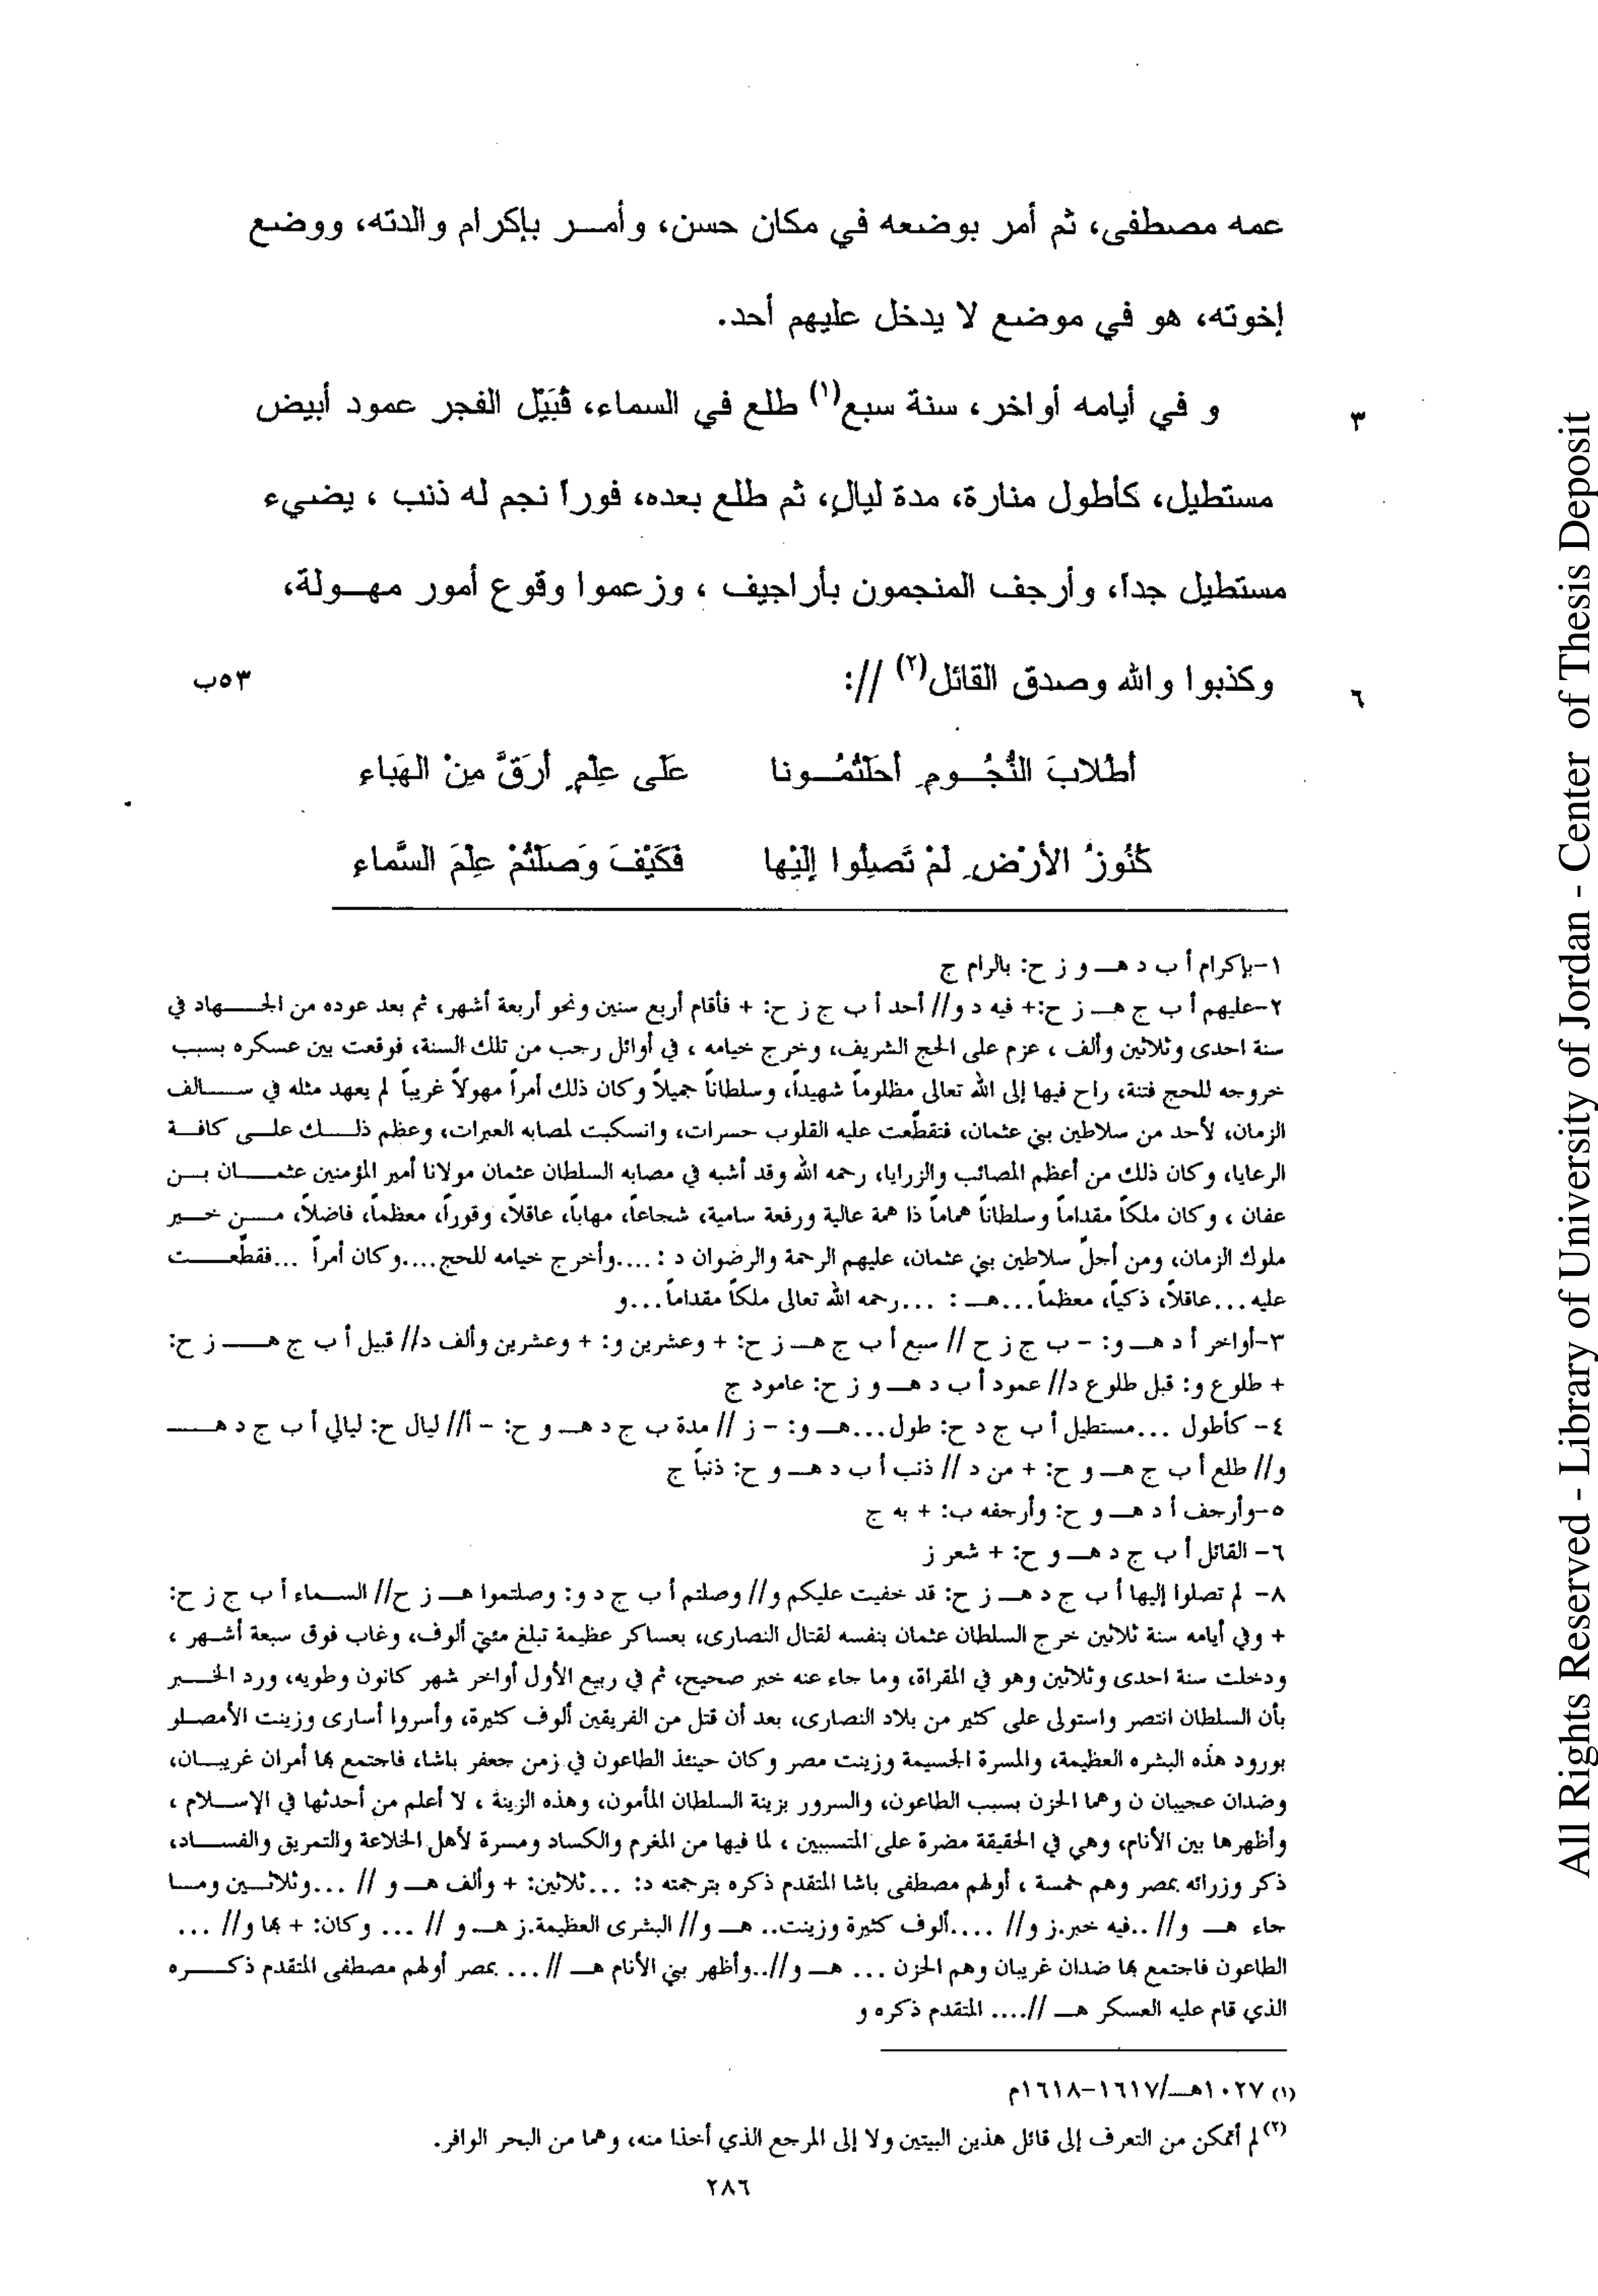 عمه مصطفى، ثم أمر بوضعه في مكان حسن، وأمـــر بإكرام والدته، ووضع
إخوته، هو في موضع لا يدخل عليهم أحد.
و في أيامه أواخر، سنة سبع(١) طلع في السماء، قُبَيْل الفجر عمود أبيض
٣
مستطيل، كأطول منارة، مدة ليالٍ، ثم طلع بعده، فوراً نجم له ذنب ، يضيء
مستطيل جداً، وأرجف المنجمون بأراجيف ، وزعموا وقوع أمور مهـــولة،
وكذبوا والله وصدق القائل(٢) //:
٦
٥٣ب
أطْلابَ النُّجُـــومِ أحَلْتُمُـــونا عَلَى عِلْمٍ أرَقَّ مِنْ الهَباءِ
كُنُوزُ الأرْضِ لَمْ تَصِلُوا إلَيْها فَكَيْفَ وَصَلْتُمْ عِلْمَ السَّماءِ
١-بإكرام أ ب د هـــ و ز ح: بالرام ج
٢-عليهم أ ب ج هـــ ز ح:+ فيه د و// أحد أ ب ج ز ح: + فأقام أربع سنين ونحو أربعة أشهر، ثم بعد عوده من الجـــهاد في
سنة احدى وثلاثين وألف ، عزم على الحج الشريف، وخرج خيامه ، في أوائل رجب من تلك السنة، فوقعت بين عسكره بسبب
خروجه للحج فتنة، راح فيها إلى الله تعالى مظلوماً شهيداً، وسلطاناً جميلاً وكان ذلك أمراً مهولاً غريباً لم يعهد مثله في ســـالف
الزمان، لأحد من سلاطين بني عثمان، فتقطّعت عليه القلوب حسرات، وانسكبت لمصابه العبرات، وعظم ذلـــك علـــى كافـــة
الرعايا، وكان ذلك من أعظم المصائب والزرايا، رحمه الله وقد أشبه في مصابه السلطان عثمان مولانا أمير المؤمنين عثمـــان بـــن
عفان ، وكان ملكاً مقداماً وسلطاناً هماماً ذا همة عالية ورفعة سامية، شجاعاً، مهاباً، عاقلاً، وقوراً، معظماً، فاضلاً، مـــن خـــير
ملوك الزمان، ومن أجلّ سلاطين بني عثمان، عليهم الرحمة والرضوان د : ....وأخرج خيامه للحج....وكان أمراً ...فقطّعـــت
عليه...عاقلاً، ذكياً، معظماً...هـــ : ...رحمه الله تعالى ملكاً مقداماً...و
٣-أواخر أ د هـــ و: - ب ج ز ح // سبع أ ب ج هـــ ز ح: + وعشرين و: + وعشرين وألف د// قبيل أ ب ج هـــ ز ح:
+ طلوع و: قبل طلوع د// عمود أ ب د هـــ و ز ح: عامود ج
٤- كأطول ...مستطيل أ ب ج د ح: طول...هـــ و: - ز // مدة ب ج د هـــ و ح: - أ// ليال ح: ليالي أ ب ج د هـــ
و// طلع أ ب ج هـــ و ح: + من د // ذنب أ ب د هـــ و ح: ذنباً ج
٥-وأرجف أ د هـــ و ح: وأرجفه ب: + به ج
٦- القائل أ ب ج د هـــ و ح: + شعر ز
٨- لم تصلوا إليها أ ب ج د هـــ ز ح: قد خفيت عليكم و// وصلتم أ ب ج د و: وصلتموا هـــ ز ح// الســـماء أ ب ج ز ح:
+ وفي أيامه سنة ثلاثين خرج السلطان عثمان بنفسه لقتال النصارى، بعساكر عظيمة تبلغ مئتي ألوف، وغاب فوق سبعة أشـــهر ،
ودخلت سنة احدى وثلاثين وهو في المقراة، وما جاء عنه خبر صحيح، ثم في ربيع الأول أواخر شهر كانون وطوبه، ورد الخـــبر
بأن السلطان انتصر واستولى على كثير من بلاد النصارى، بعد أن قتل من الفريقين ألوف كثيرة، وأسروا أسارى وزينت الأمصـــلو
بورود هذه البشره العظيمة، والمسرة الجسيمة وزينت مصر وكان حينئذ الطاعون في زمن جعفر باشا، فاجتمع بها أمران غريبـــان،
وضدان عجيبان ن وهما الحزن بسبب الطاعون، والسرور بزينة السلطان المأمون، وهذه الزينة ، لا أعلم من أحدثها في الإســـلام ،
وأظهرها بين الأنام، وهي في الحقيقة مضرة على المتسببين ، لما فيها من المغرم والكساد ومسرة لأهل الخلاعة والتمريق والفســـاد،
ذكر وزرائه بمصر وهم خمسة ، أولهم مصطفى باشا المتقدم ذكره بترجمته د: ...ثلاثين: + وألف هـــ و // ...وثلاثـــين ومـــا
جاء هـــ و// ..فيه خبر.ز و// ....ألوف كثيرة وزينت.. هـــ و// البشرى العظيمة.ز هـــ و // ... وكان: + بها و// ...
الطاعون فاجتمع بها ضدان غريبان وهم الحزن ... هـــ و//..وأظهر بني الأنام هـــ //... بمصر أولهم مصطفى المتقدم ذكـــره
الذي قام عليه العسكر هـــ //.... المتقدم ذكره و
(١) ١٠٢٧هـــ/١٦١٧-١٦١٨م
(٢) لم أتمكن من التعرف إلى قائل هذين البيتين ولا إلى المرجع الذي أخذا منه، وهما من البحر الوافر.
٢٨٦
All Rights Reserved - Library of University of Jordan - Center of Thesis Deposit